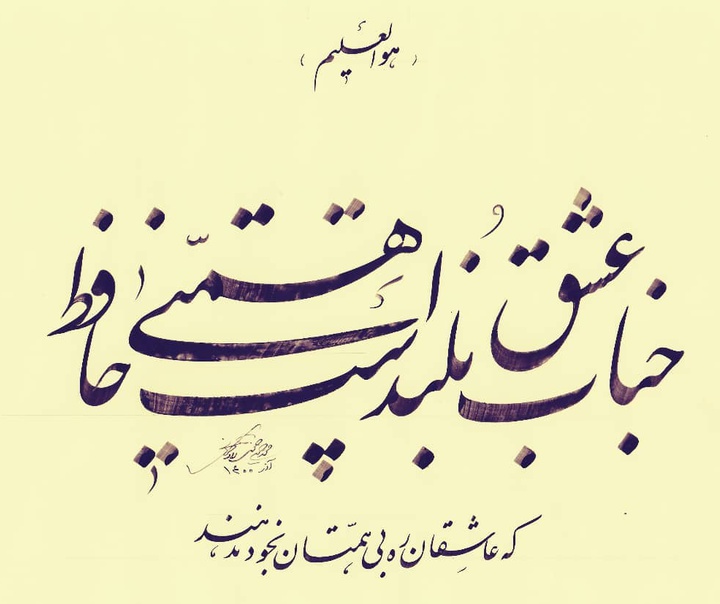 (هوالعلیم)
جناب عشق بلند است همّتی حافظ
آذر ۱۴۰۰
که عاشقان ره بی همّتان بخود ندهند